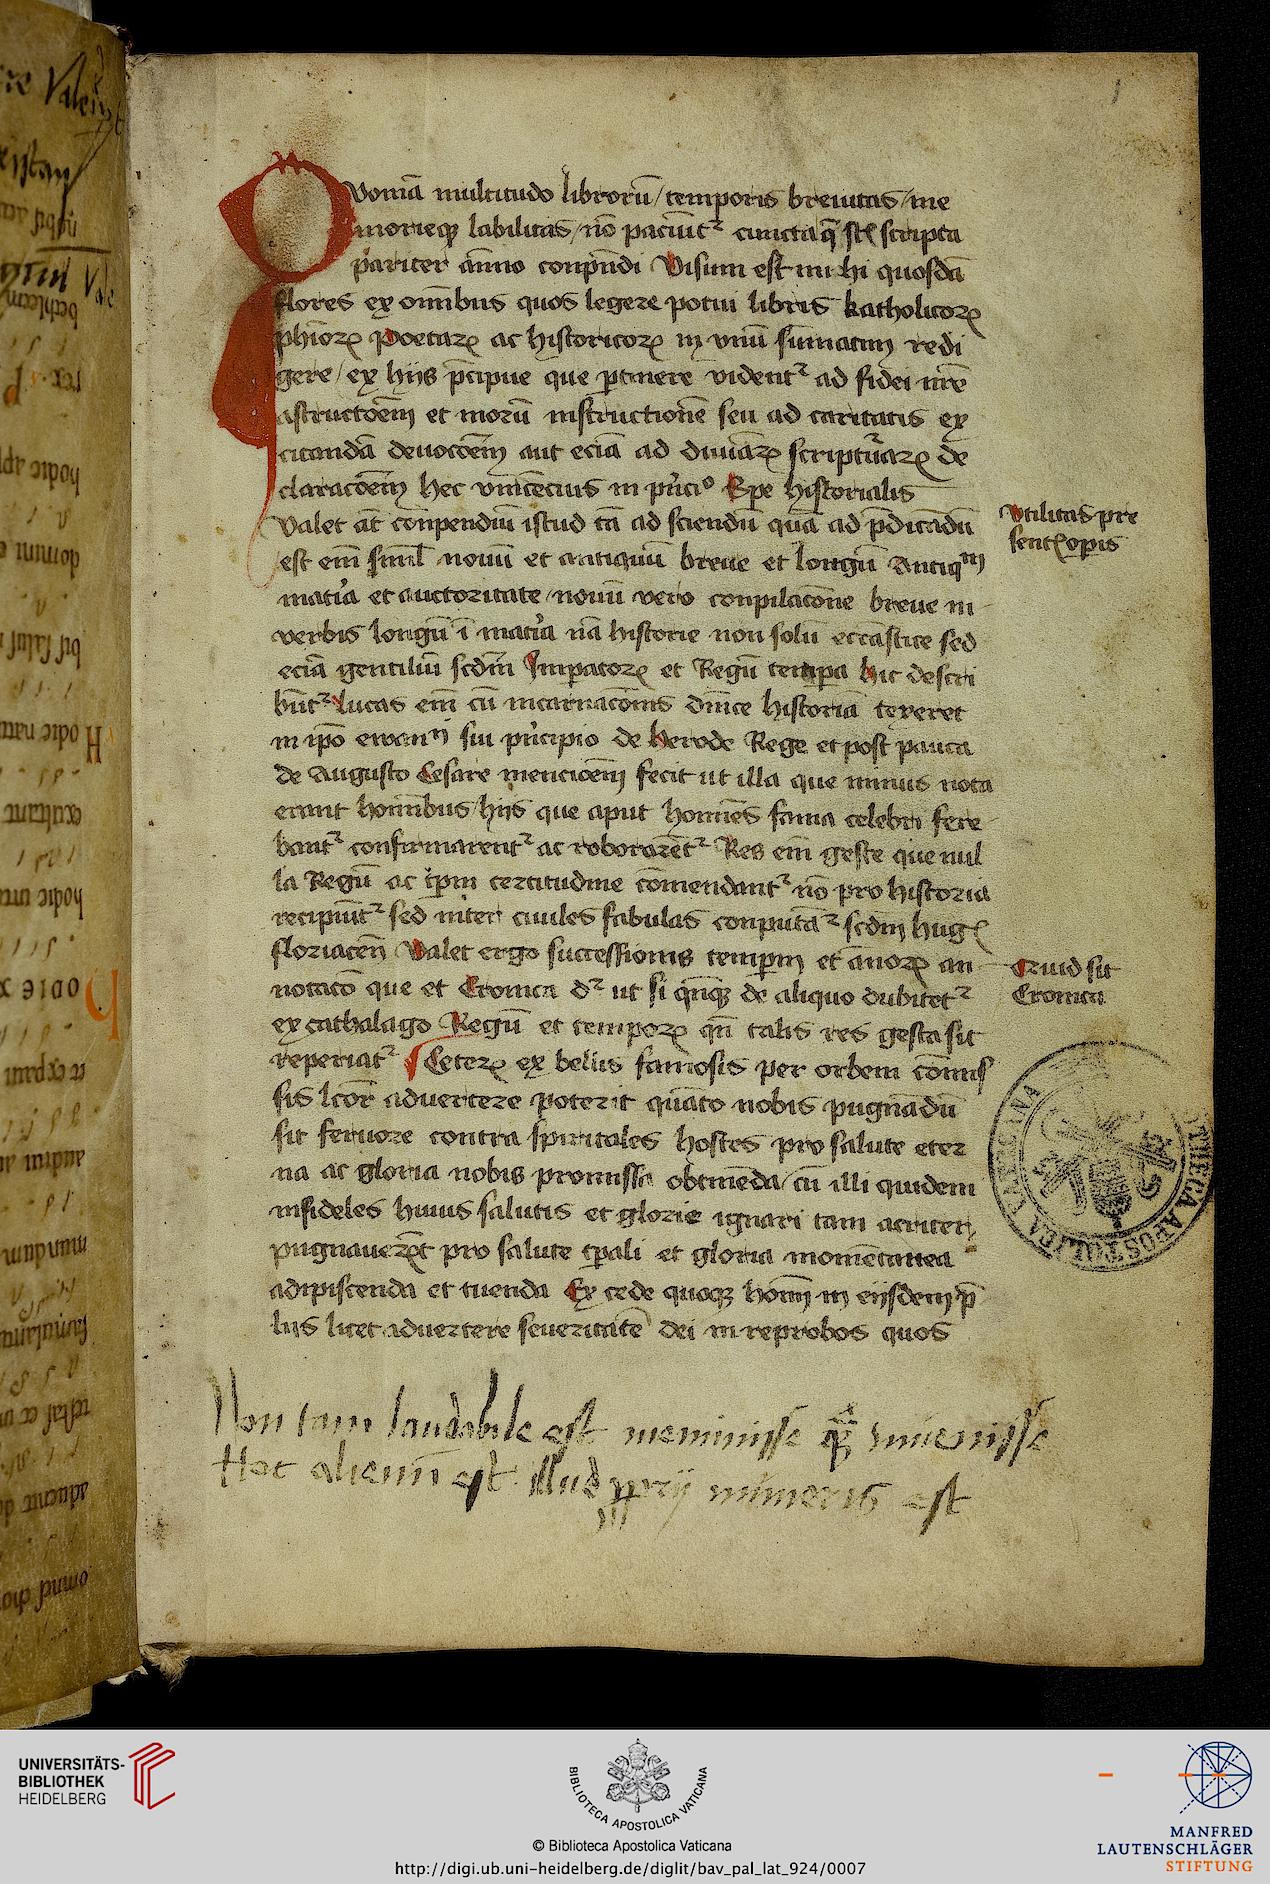 1
Quoniā multitudo librorū / temporis breuitas / me
morieq; labilitas / nō paciūt᷑ cuncta q̄ sc̄ scripta
pariter ān̄o conp̄ndi Visum est mi hi quosdā
flores ex om̄ibus quos legere potui libris katholicoꝝ
ph̄ioꝝ Poetaꝝ ac historicoꝝ in vnū sūmatim redi
gere / ex hijs p̄cipue que ꝑtinere vident᷑ ad fidei nr̄e
astructōem et morū instructionē seu ad caritatis ex
citandā deuocōem aut eciā ad diuinaꝝ scripturaꝝ de
claracōem Hec vincencius in pn̄cio Spe historialis
Valet āt conpendiū istud tā ad sciendū quā ad p̄dicādū
est em̄ siml̄ nouū et antiquū breue et longū Antiqm
mat̄ia et auctoritate / nouū vero conpilacōne breue in
verbis longū ī mat̄ia nā historie non solū ecc̄astice sed
eciā gentiliū scdm̄ Imꝑatoꝝ et Regū temꝑa hic descri
būt᷑ Lucas em̄ cū incarnacōnis dn̄ice historiā texeret
in ip̄o ewan sui pn̄cipio de Herode Rege et post pauca
de Augusto Cesare mencioēm fecit ut illa que minus nota
erant homībus / hijs que aput homīes fama celebri fere
bant᷑ confirmarent᷑ ac roborarēt᷑ Res em̄ geste que nul
la Regū ac tp̄m certitudine cōmendant᷑ nō pro historia
recipiūt᷑ sed inter ciuiles fabulas conputāt᷑ scdm̄ hug
floriacen̄ Valet ergo successionis tempm̄ et ānoꝝ an
notacō que et Cronica d᷑ ut si qn̄q; de aliquo dubitet᷑
ex cathalago Regū et temporꝝ qn̄ talis res gesta sit
reperiat᷑ Ceterꝝ ex bellis famosis per orbem cōmis
sis lc̄or aduertere poterit quāto nobis pugnādū
sit feruore contra spiritales hostes pro salute eter
na ac gloria nobis promissa obtinēda / cū illi quidem
infideles huius salutis et glorie ignari tam acriter
pugnauerēt pro salute tꝑali et gloria momētanea
adipiscenda et tuenda Ex cede quoq; homīm in eijsdem p̄
lijs licet aduertere seueritatē dei in reprobos quos
Vtilitas pre
sentꝭ opis
Quid sit
Cronica
Non tam laudabile est meminisse q̄ inuenisse
Hoc alienū est illud ꝓprij muneris est
UNIVERSITÄTS-
BIBLIOTHEK
HEIDELBERG
BIBLIOTECA APOSTOLICA VATICANA
© Biblioteca Apostolica Vaticana
http://digi.ub.uni-heidelberg.de/diglit/bav_pal_lat_924/0007
MANFRED
LAUTENSCHLÄGER
STIFTUNG